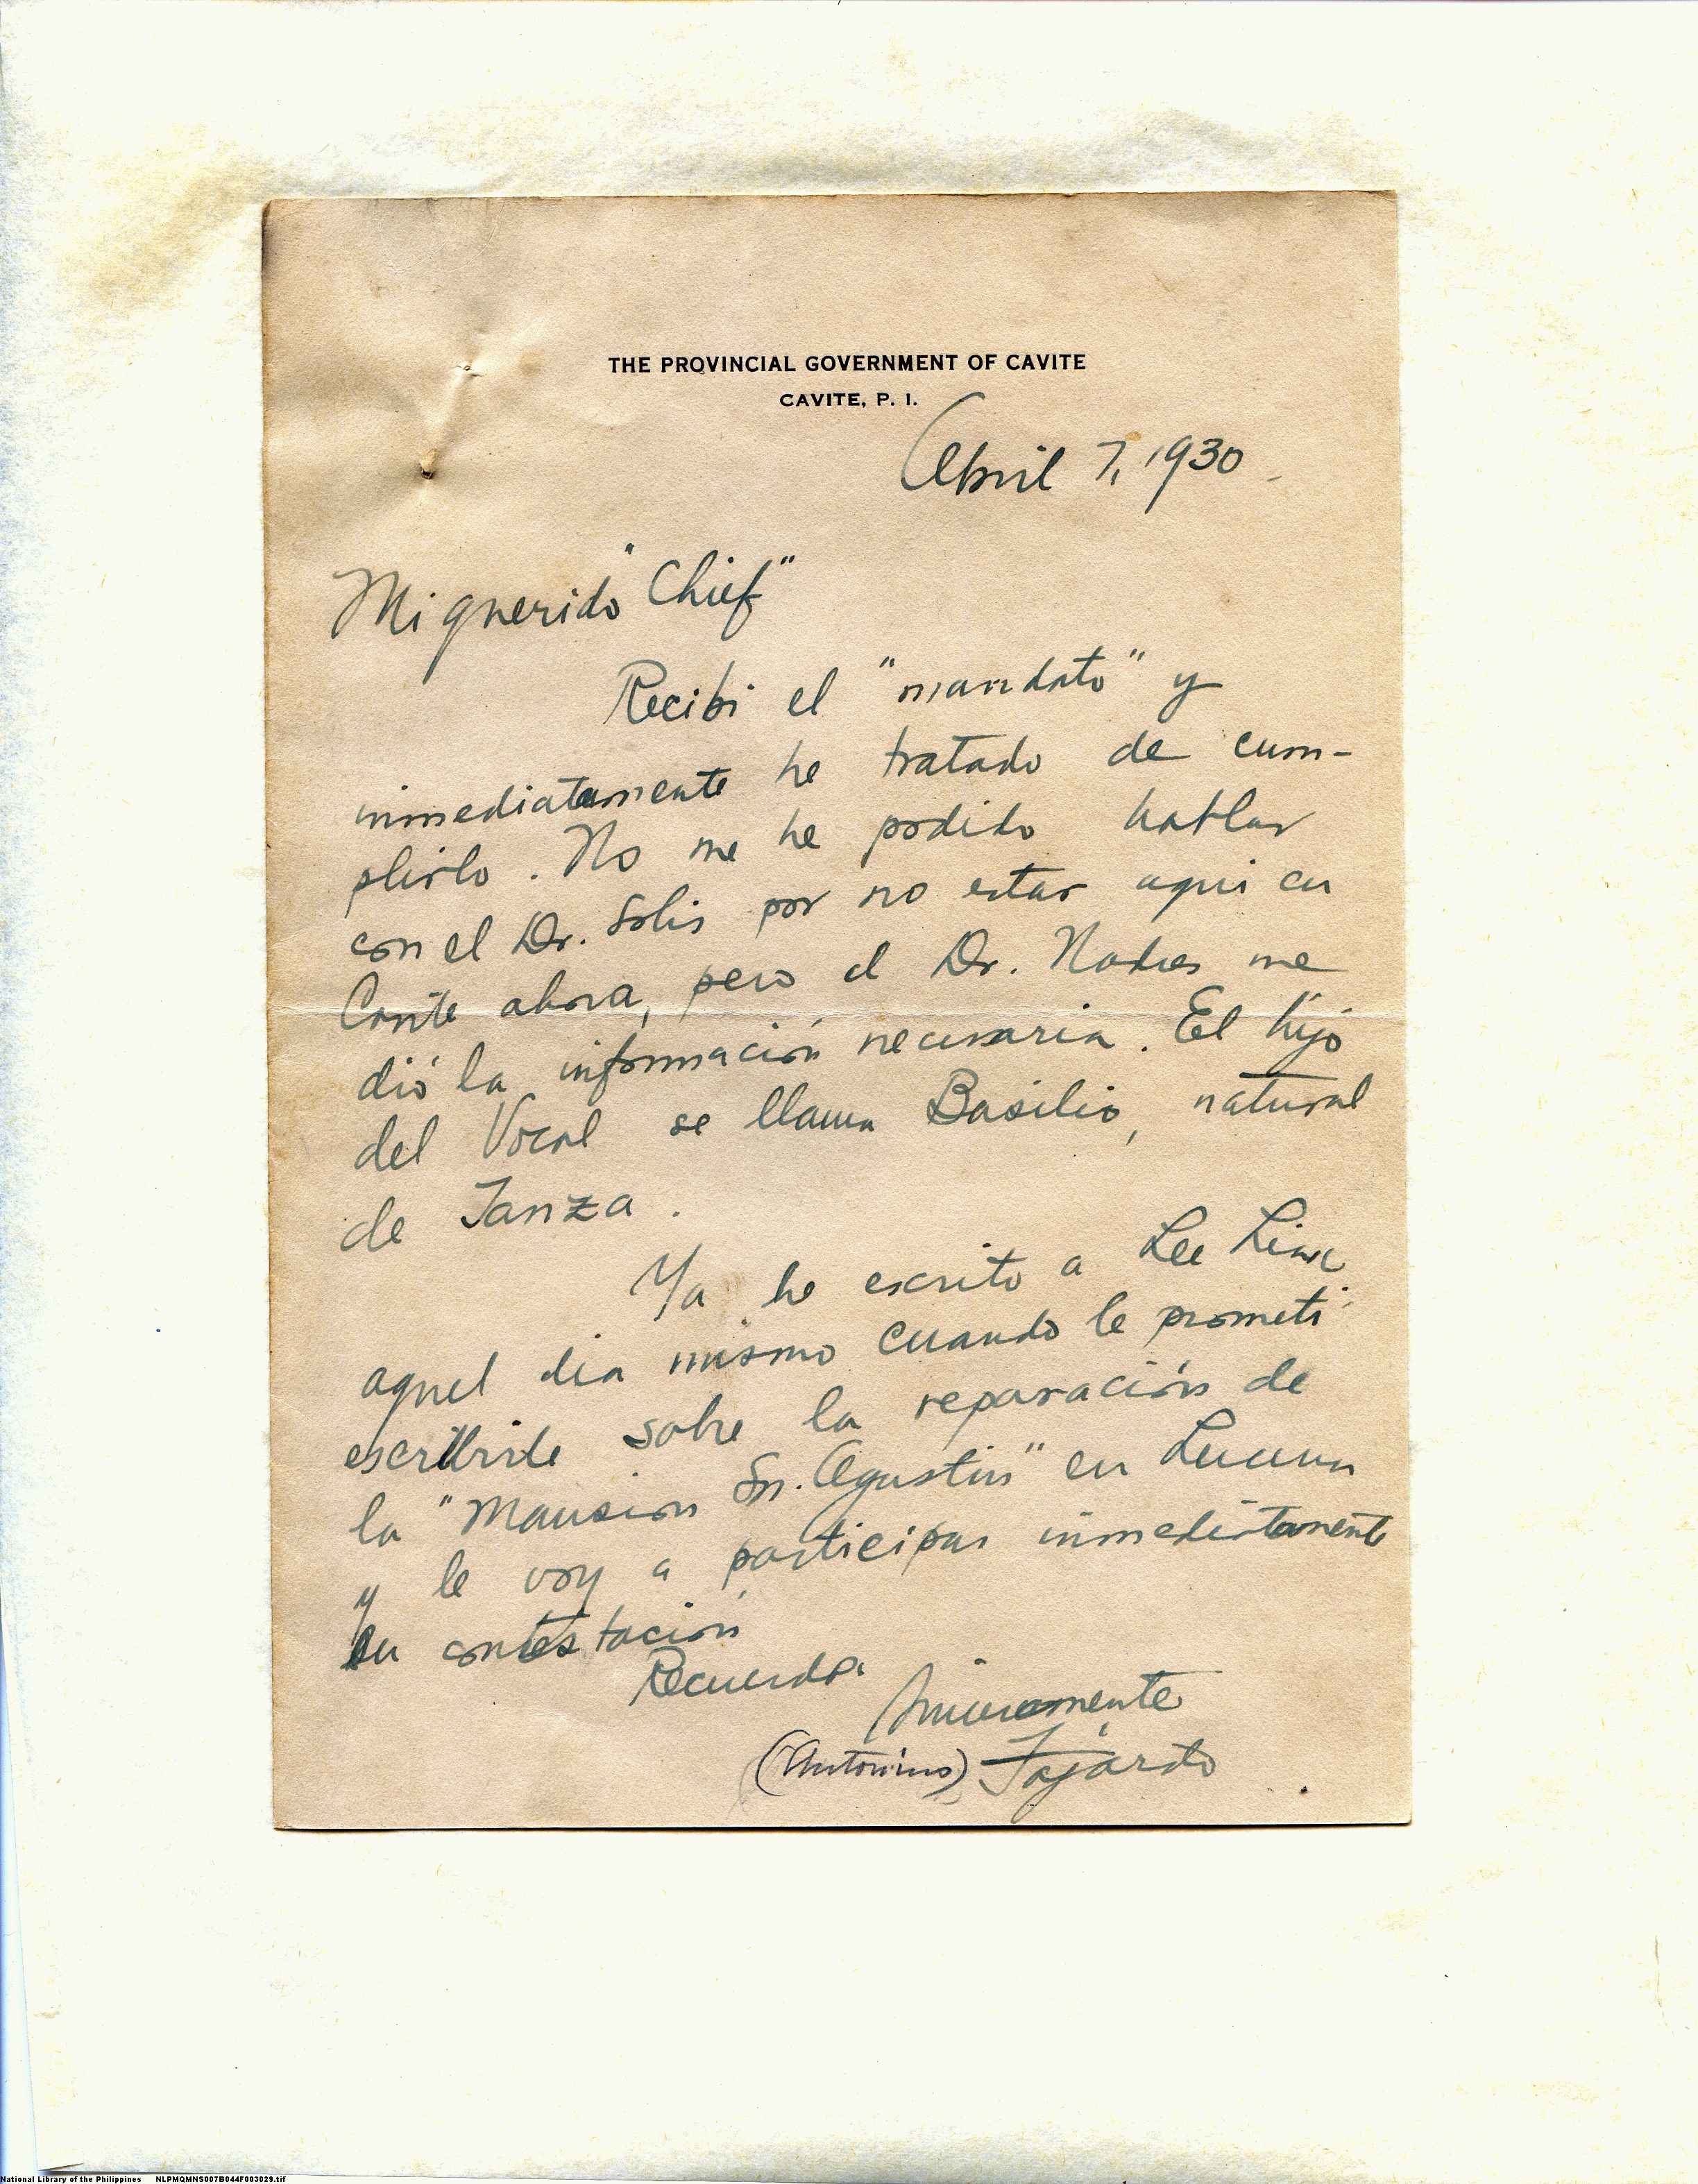 THE PROVINCIAL GOVERNMENT OF CAVITE
CAVITE, P. I.
Abril 7, 1930
Mi querido "Chief"
Recibi el "mandato" y
inmediatamente he tratado de cum-
plirlo. No me he podido hablar
con el Dr. Solis por no estar aqui en
Cavite ahora, pero el Dr. me
dió la información necesaria. El hijo
del Vocal se llama Basilio, natural
de Tanza.
Ya he escrito a Lee Lim
aquel dia mismo cuando le prometi
escribirle sobre la reparación de
la "Mansion Sn. Agustin" en Lucena
y le voy a participar inmediatamente
su contestación
Recuerdos
Sinceramente
(Antonino) Fajardo
National Library of the Philippines NLPMQMNS007B044F003029.tif